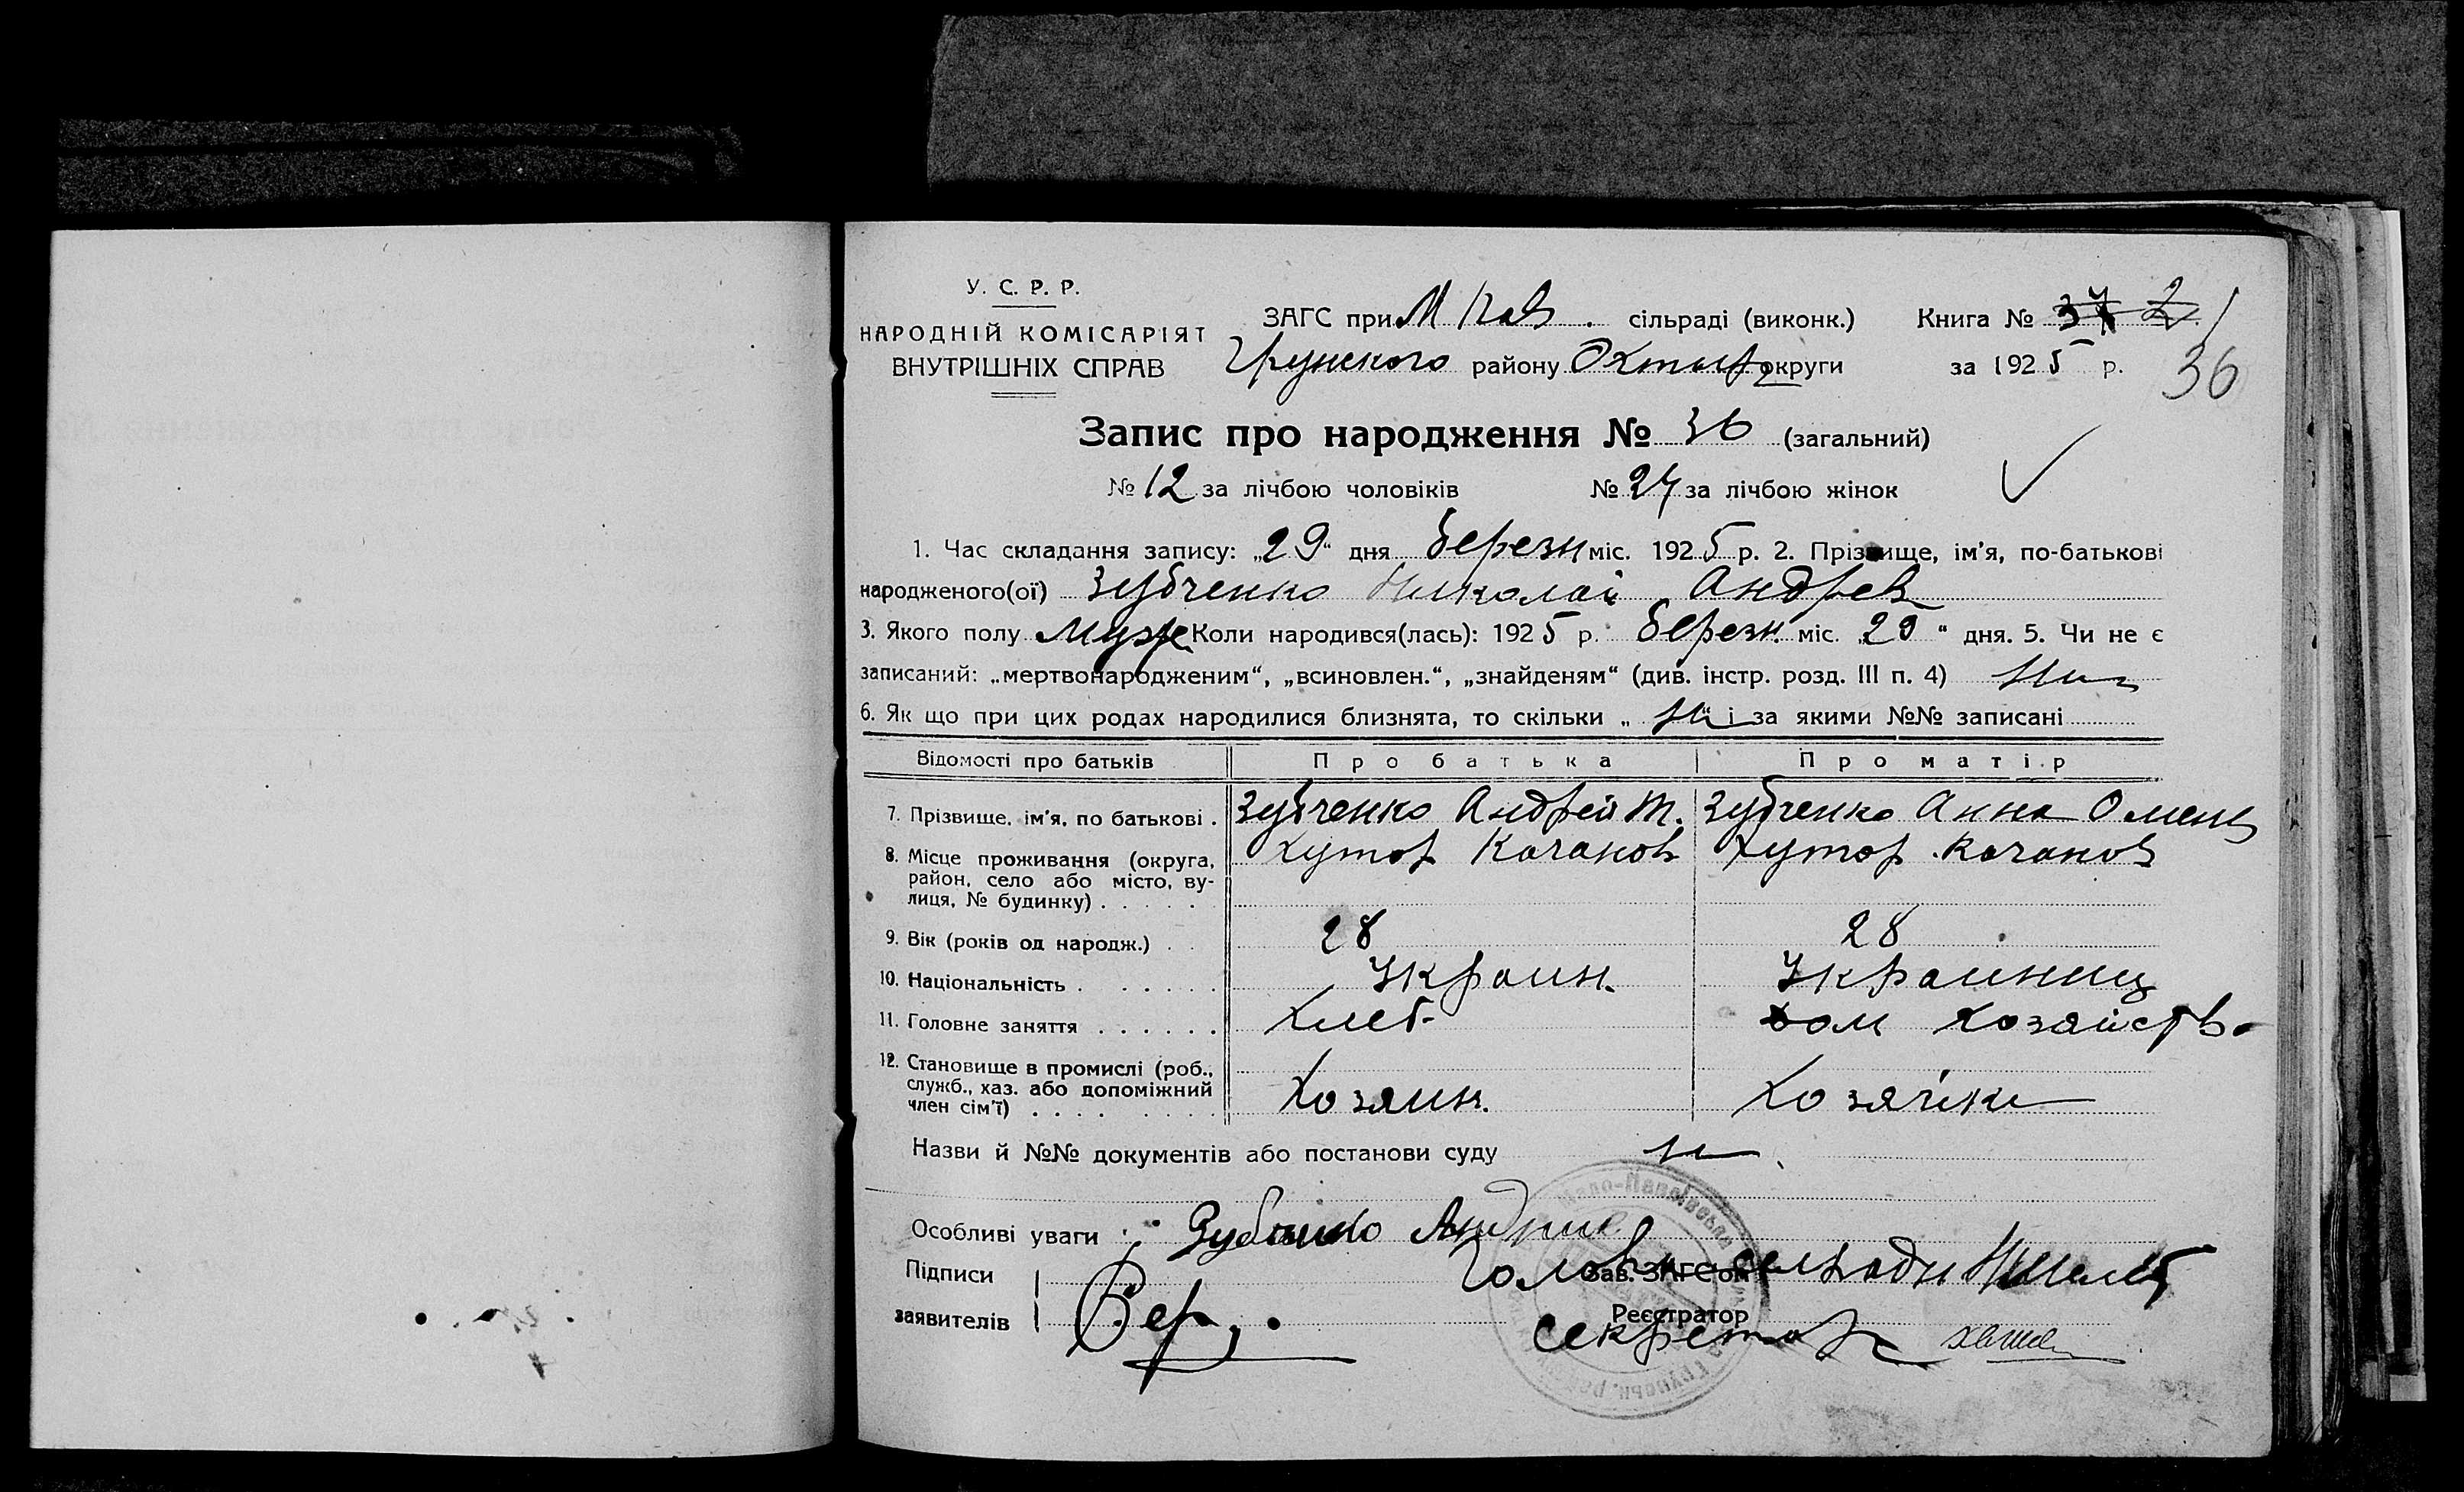 У. С. Р. Р.
НАРОДНІЙ КОМІСАРІЯТ
ВНУТРІШНІХ СПРАВ
ЗАГС при М Пав. сільраді (виконк.)
Грунского району Охтыр округи
Книга № 37 2
за 1925 р.
36
Запис про народження № 36 (загальний)
№ 12 за лічбою чоловіків № 24 за лічбою жінок
1. Час складання запису: „29“ дня березн міс. 1925 р. 2. Прізвище, ім'я, по-батькові
народженого(ої) Зубченко Николай Андрев
3. Якого полу Муж Коли народився(лась): 1925 р. березн. міс. „29“ дня. 5. Чи не є
записаний: „мертвонародженим“, „всиновлен.“, „знайденям“ (див. інстр. розд. III п. 4)
6. Як що при цих родах народилися близнята, то скільки „ “ і за якими №№ записані
Відомості про батьків Про батька Про матір
7. Прізвище, ім'я, по батькові . Зубченко Андрей Т. Зубченко Анна Омелн
8. Місце проживання (округа, Хутор Качанов Хутор Качанов
район, село або місто, ву-
лиця, № будинку) . . . . .
9. Вік (років од народж.) . . 28 28
10. Національність . . . . . . Украин. Украиниц
11. Головне заняття . . . . . . Хлеб- дом хозяйств.
12. Становище в промислі (роб.,
служб., хаз. або допоміжний Хозяин. Хозяйка
член сім'ї) . . . . . . . .
Назви й №№ документів або постанови суду
Особливі уваги Зубченко Андрий
Підписи Зав. ЗАГС'ом Голова сельради
заявителів Вер. Реєстратор
секретар